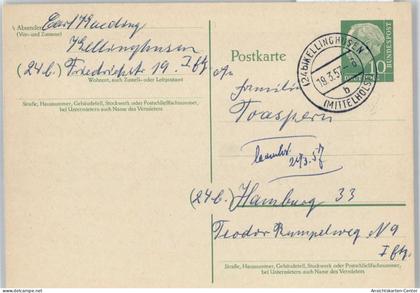 Absender:
Kellinghusen
(Vor- und Zuname)
(24b) Friedrichstr 19. I Etg
Wohnort, auch Zustell- oder Leitpostamt
Straße, Hausnummer, Gebäudeteil, Stockwerk oder Postschließfachnummer,
bei Untermietern auch Name des Vermieters
Postkarte
DEUTSCHE BUNDESPOST
10
(24b) KELLINGHUSEN
19.3.57
b
(MITTELHOLST)
Familie
Toaspern
21/3.57
(24b) Hamburg 33
Teodor Rumpelweg No 9
I Etg.
Straße, Hausnummer, Gebäudeteil, Stockwerk oder Postschließfachnummer,
bei Untermietern auch Name des Vermieters
Ansichtskarten-Center.de